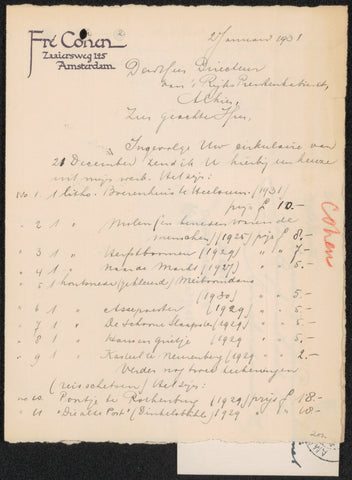 Fré Cohen
Zaaiersweg 125
Amsterdam
2 Januari 1931
Den Heer Directeur
van 's Rijks Prentenkabinet
Alhier,
Zeer geachte Heer,
Ingevolge Uw cirkulaire van
21 December zend ik U hierbij een keuze
uit mijn werk. Het zijn:
No. 1 1 litho. Boerenhuis te (1931)
prijs f 10.-
" 2 1 " Molen (en varende
menschen) (1925) prijs f 8.-
" 3 1 " Herfstboomen (1929) " " 7.-
" 4 1 " Markt (1927) " " 5.-
" 5 1 houtsnede (gekleurd)
(1930) " " 5.-
" 6 1 " Assepoester (1929) " " 5.-
" 7 1 " De Schoone Slaapster (1929) " " 5.-
" 8 1 " Hans en Grietje " " 5.-
" 9 1 " Kasteel te (1929) " " 2.-
Verder nog twee teekeningen
(reisschetsen) Het zijn:
no 10 Poortje te Rothenburg (1929) prijs f 18.-
" 11 "Die alte Post" (Dinkelsbühl) 1929 " " 18.-
Cohen